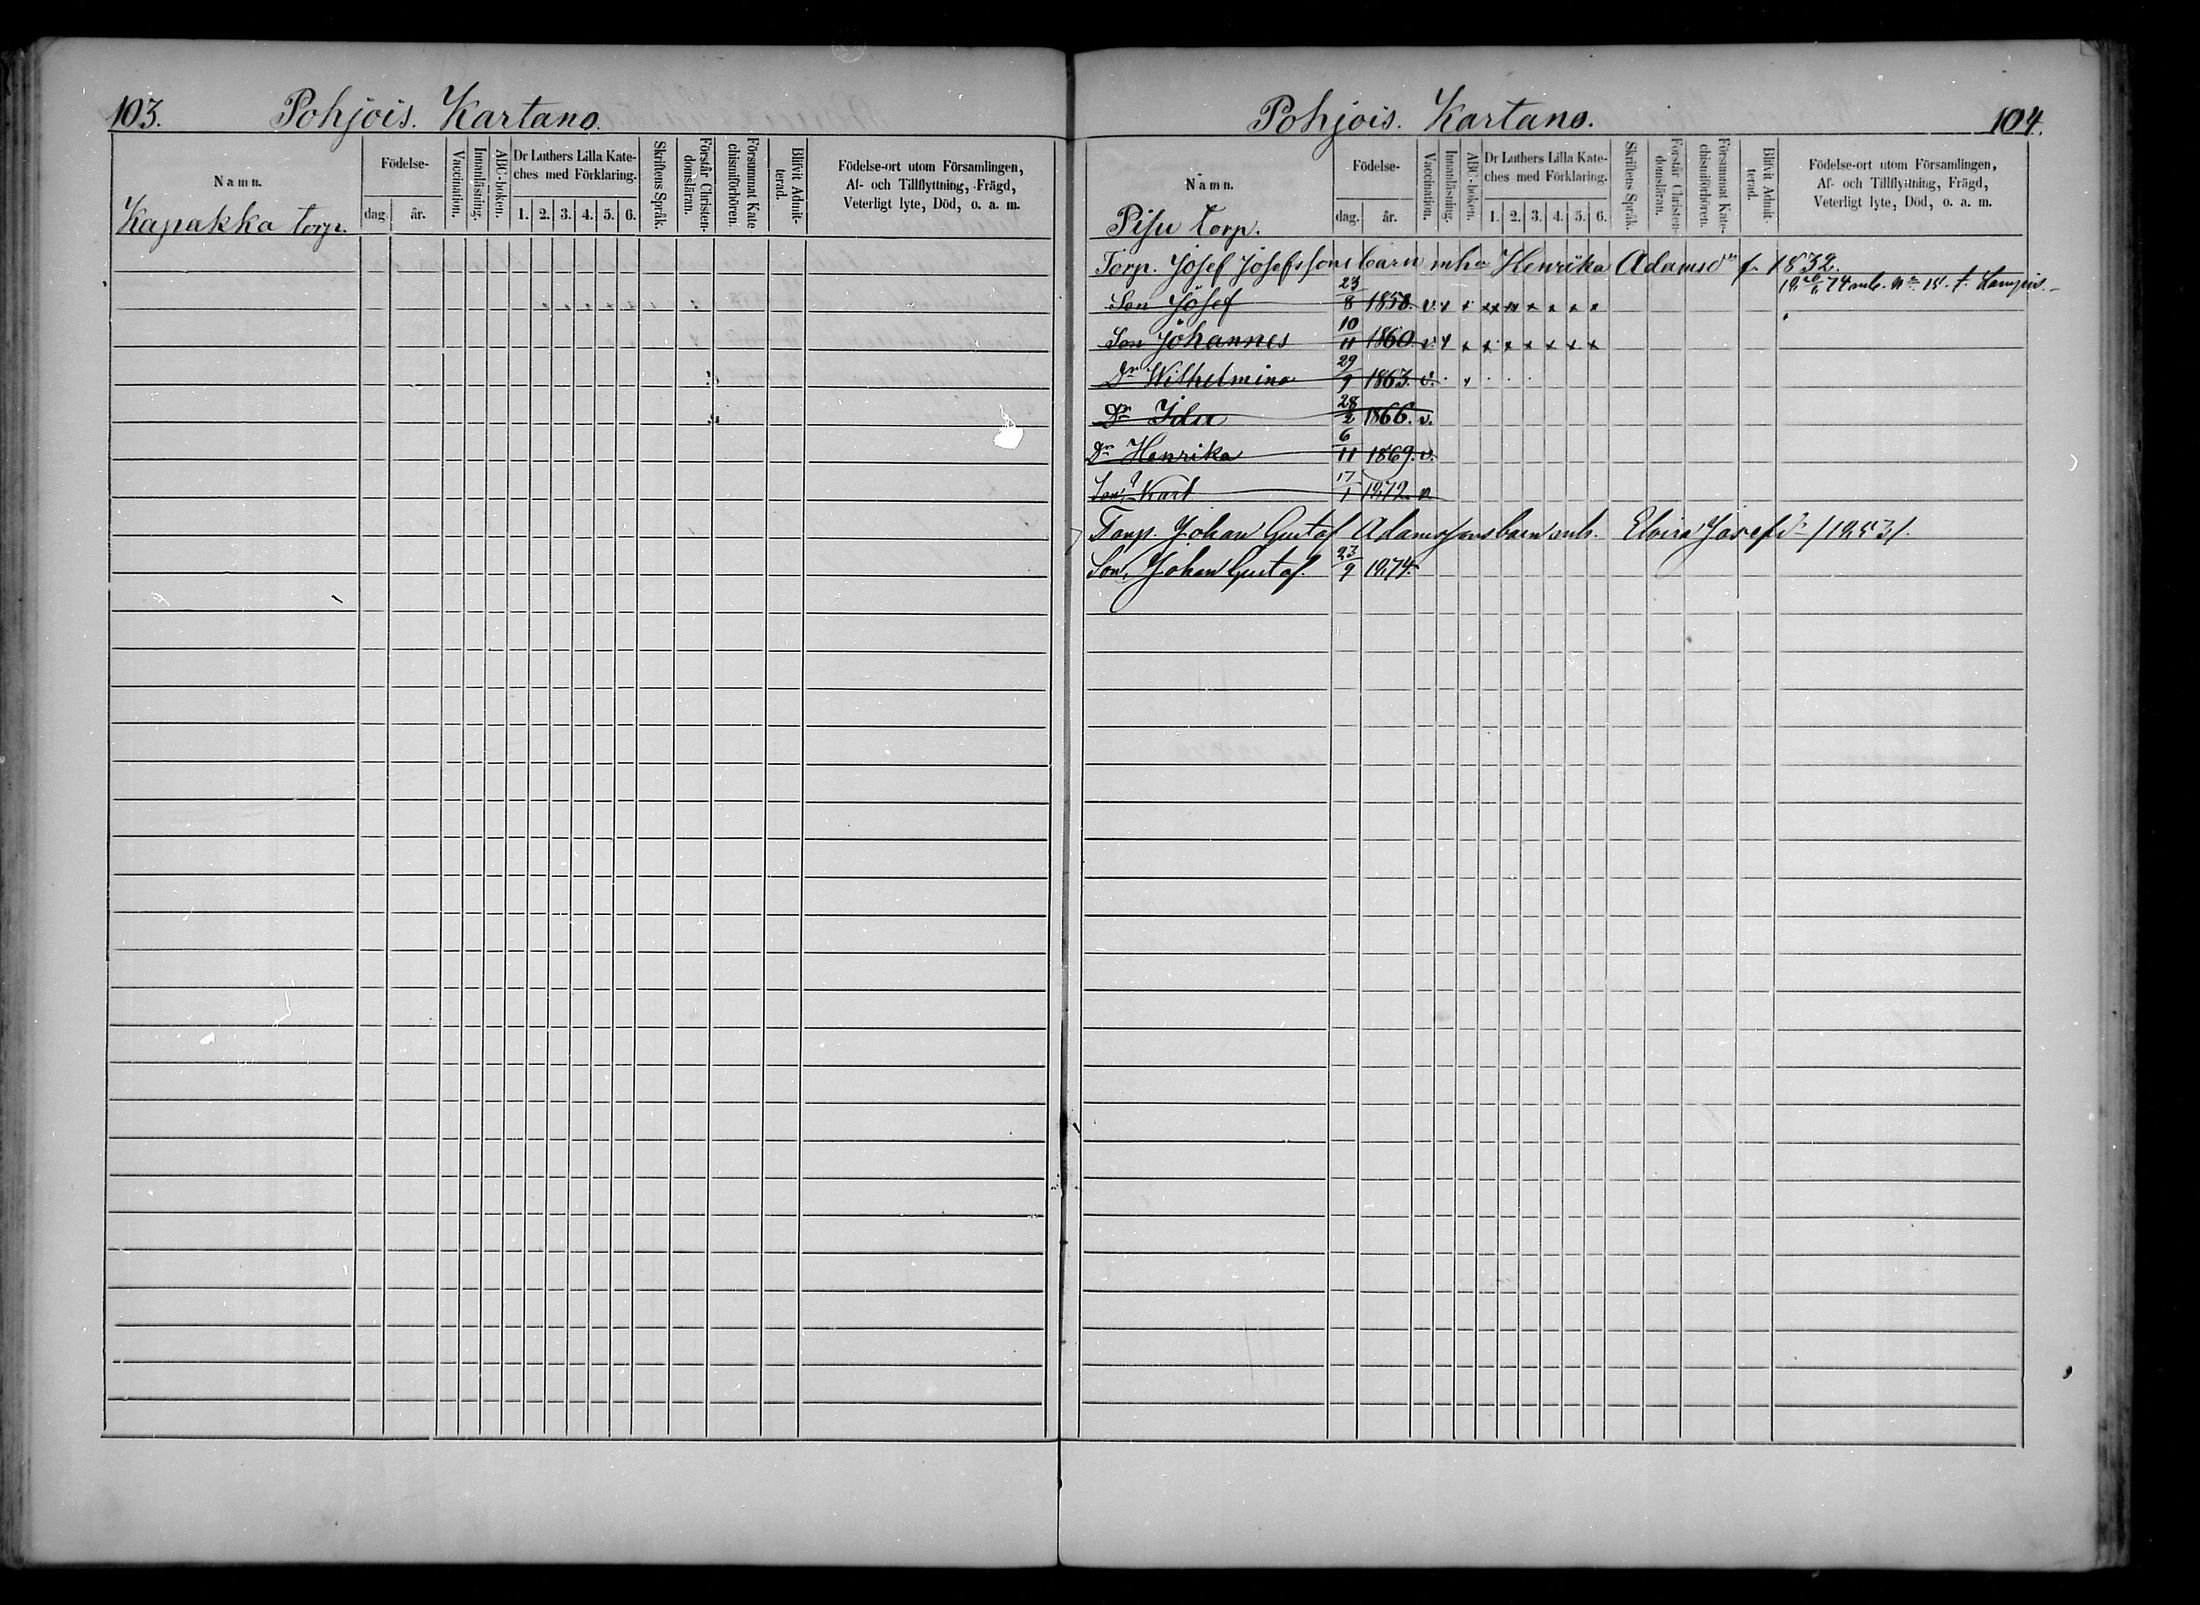 103. Pohjois. Kartano.
Namn.
Födelse-
dag. år.
Vaccination.
Innanläsning.
ABC-boken.
Dr Luthers Lilla Kate-
ches med Förklaring.
1. 2. 3. 4. 5. 6.
Skriftens Språk.
Förstår Christen-
domsläran.
Försummat Kate
chismiförhören.
Blifvit Admit-
terad.
Födelse-ort utom Församlingen,
Af- och Tillflyttning, Frägd,
Veterligt lyte, Död, o. a. m.
Kapakka torp.
Pohjois. Kartano. 104.
Namn.
Födelse-
dag. år.
Vaccination.
Innanläsning.
ABC-boken.
Dr Luthers Lilla Kate-
ches med Förklaring.
1. 2. 3. 4. 5. 6.
Skriftens Språk.
Förstår Christen-
domsläran.
Försummat Kate-
chismiförhören.
Blifvit Admit-
terad.
Födelse-ort utom Församlingen,
Af- och Tillflyttning, Frägd,
Veterligt lyte, Död, o. a. m.
Pisu torp.
Torp. Josef Josefssons barn mha Henrika Adamsdr f. 1832.
Son Josef 23/8 1858. v. x x xx x x x x x
Son Johannes 10/11 1860. v. x x x x x x x x
Dr Wilhelmina 29/9 1863. v.
Dr Ida 28/2 1866. v.
Dr Henrika 6/11 1869. v.
Son, Karl 17/1 1872. v.
Torp. Johan Gustaf Adamssons barn mh. Elvira Josefsdr /1853/.
Son, Johan Gustaf. 23/9 1874.